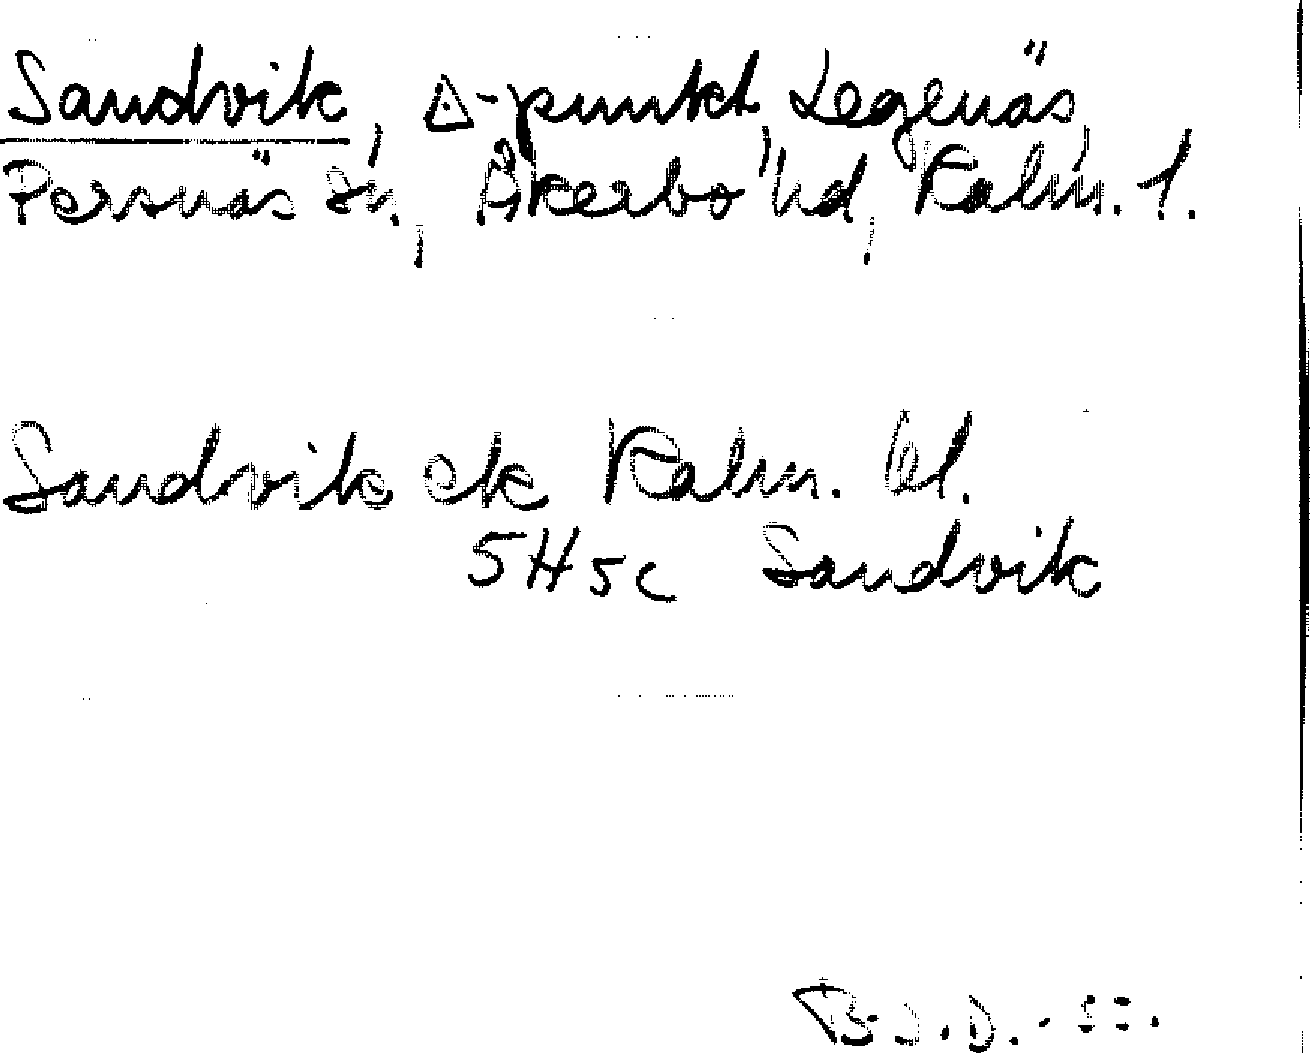 Sandvik, △-punkt, Legenäs,
Persnäs sn, Åkerbo hd, Kalm. l.
Sandvik ek Kalm. lül.
5H5c Sandvik
B.J.D.